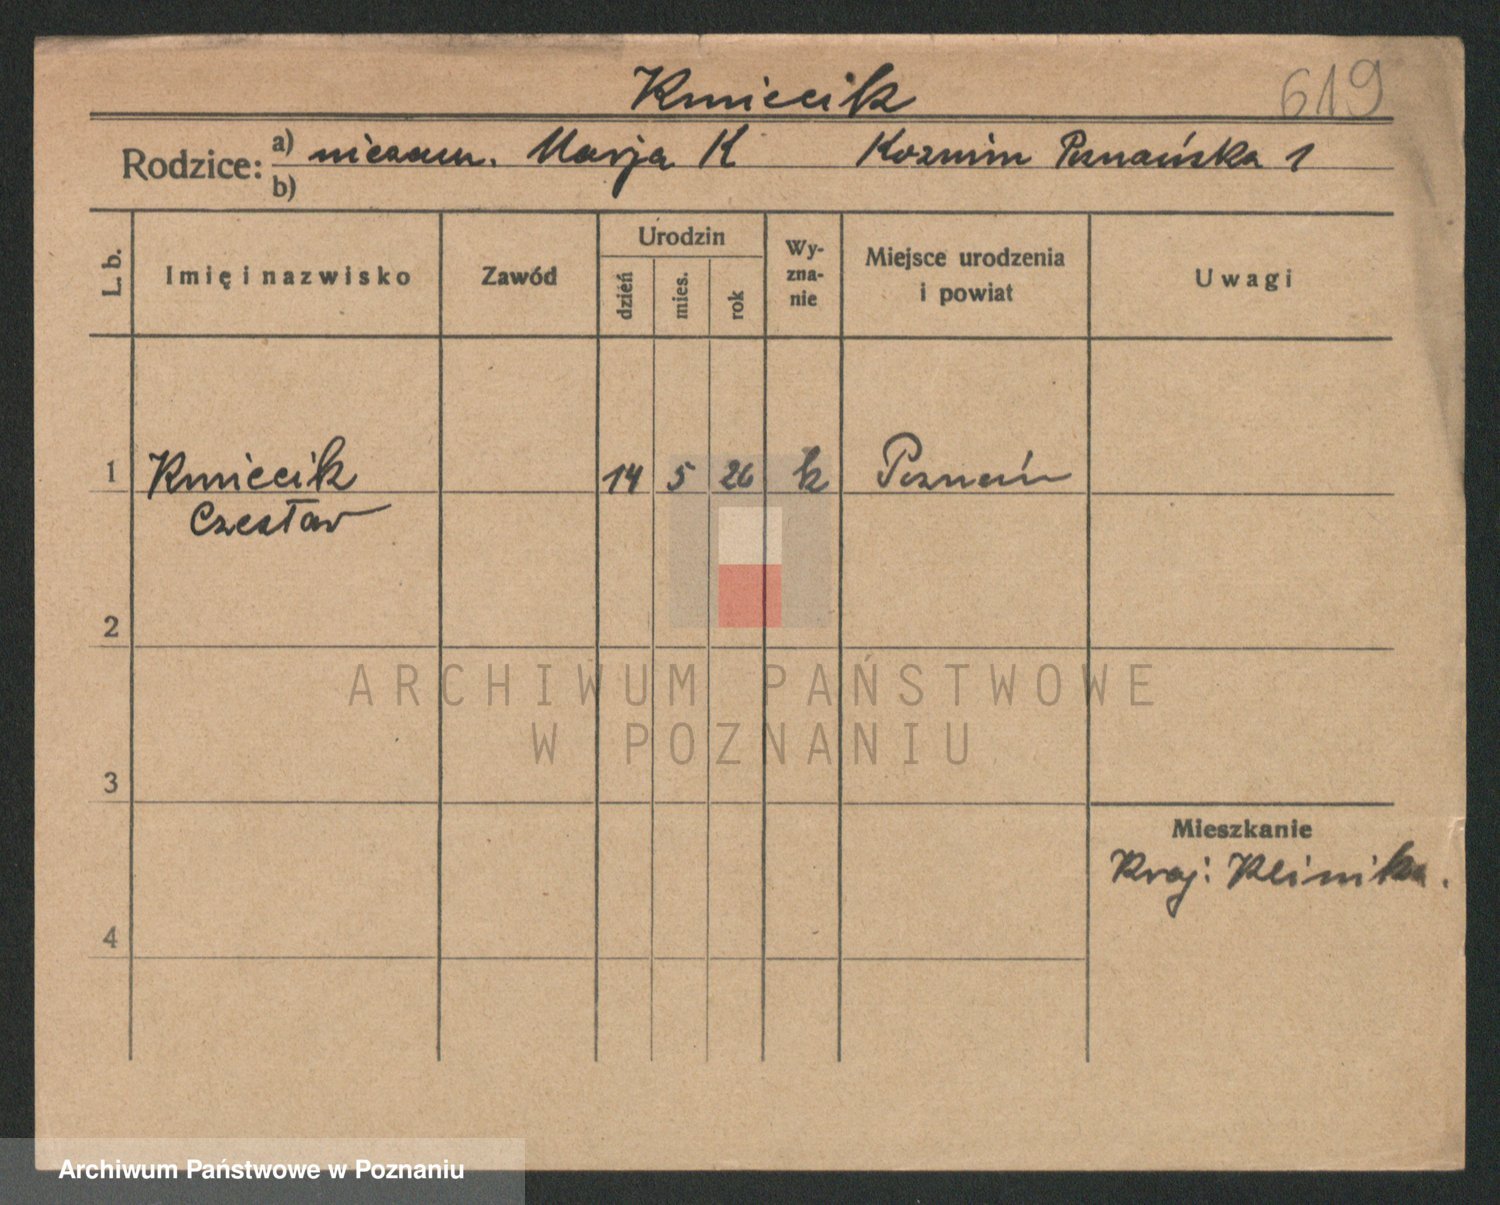 Kmiecik
619
Rodzice: a) niezam. Marja K Kozmin Poznańska 1
b)
L. b.
Imię i nazwisko
Zawód
Urodzin
dzień
mies.
rok
Wy-
zna-
nie
Miejsce urodzenia
i powiat
Uwagi
1 Kmiecik 14 5 26 k Poznań
Czesław
2
ARCHIWUM PAŃSTWOWE
W POZNANIU
3
Mieszkanie
Kraj. Klinika.
4
Archiwum Państwowe w Poznaniu